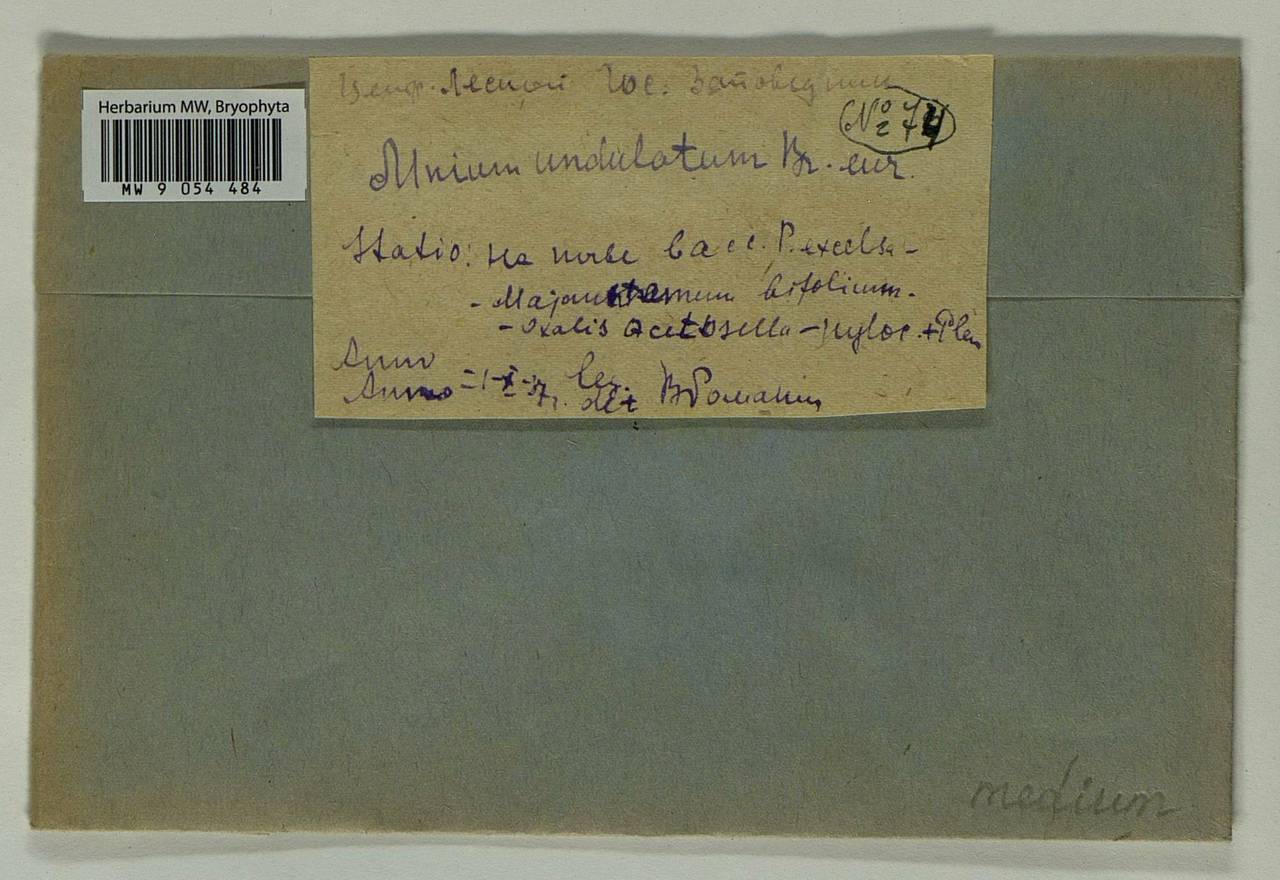 Herbarium MW, Bryophyta
MW 9 054 484
Центр. Лесной Гос. Заповедник
№ 274
Mnium undulatum Br. eur.
Statio: На почве в асс. P. excelsa -
- Majanthemum bifolium. -
- Oxalis acetosella - Hyloc. + Pleu
Anno
Anno = 1-X-37. leg. det В Романи
medium